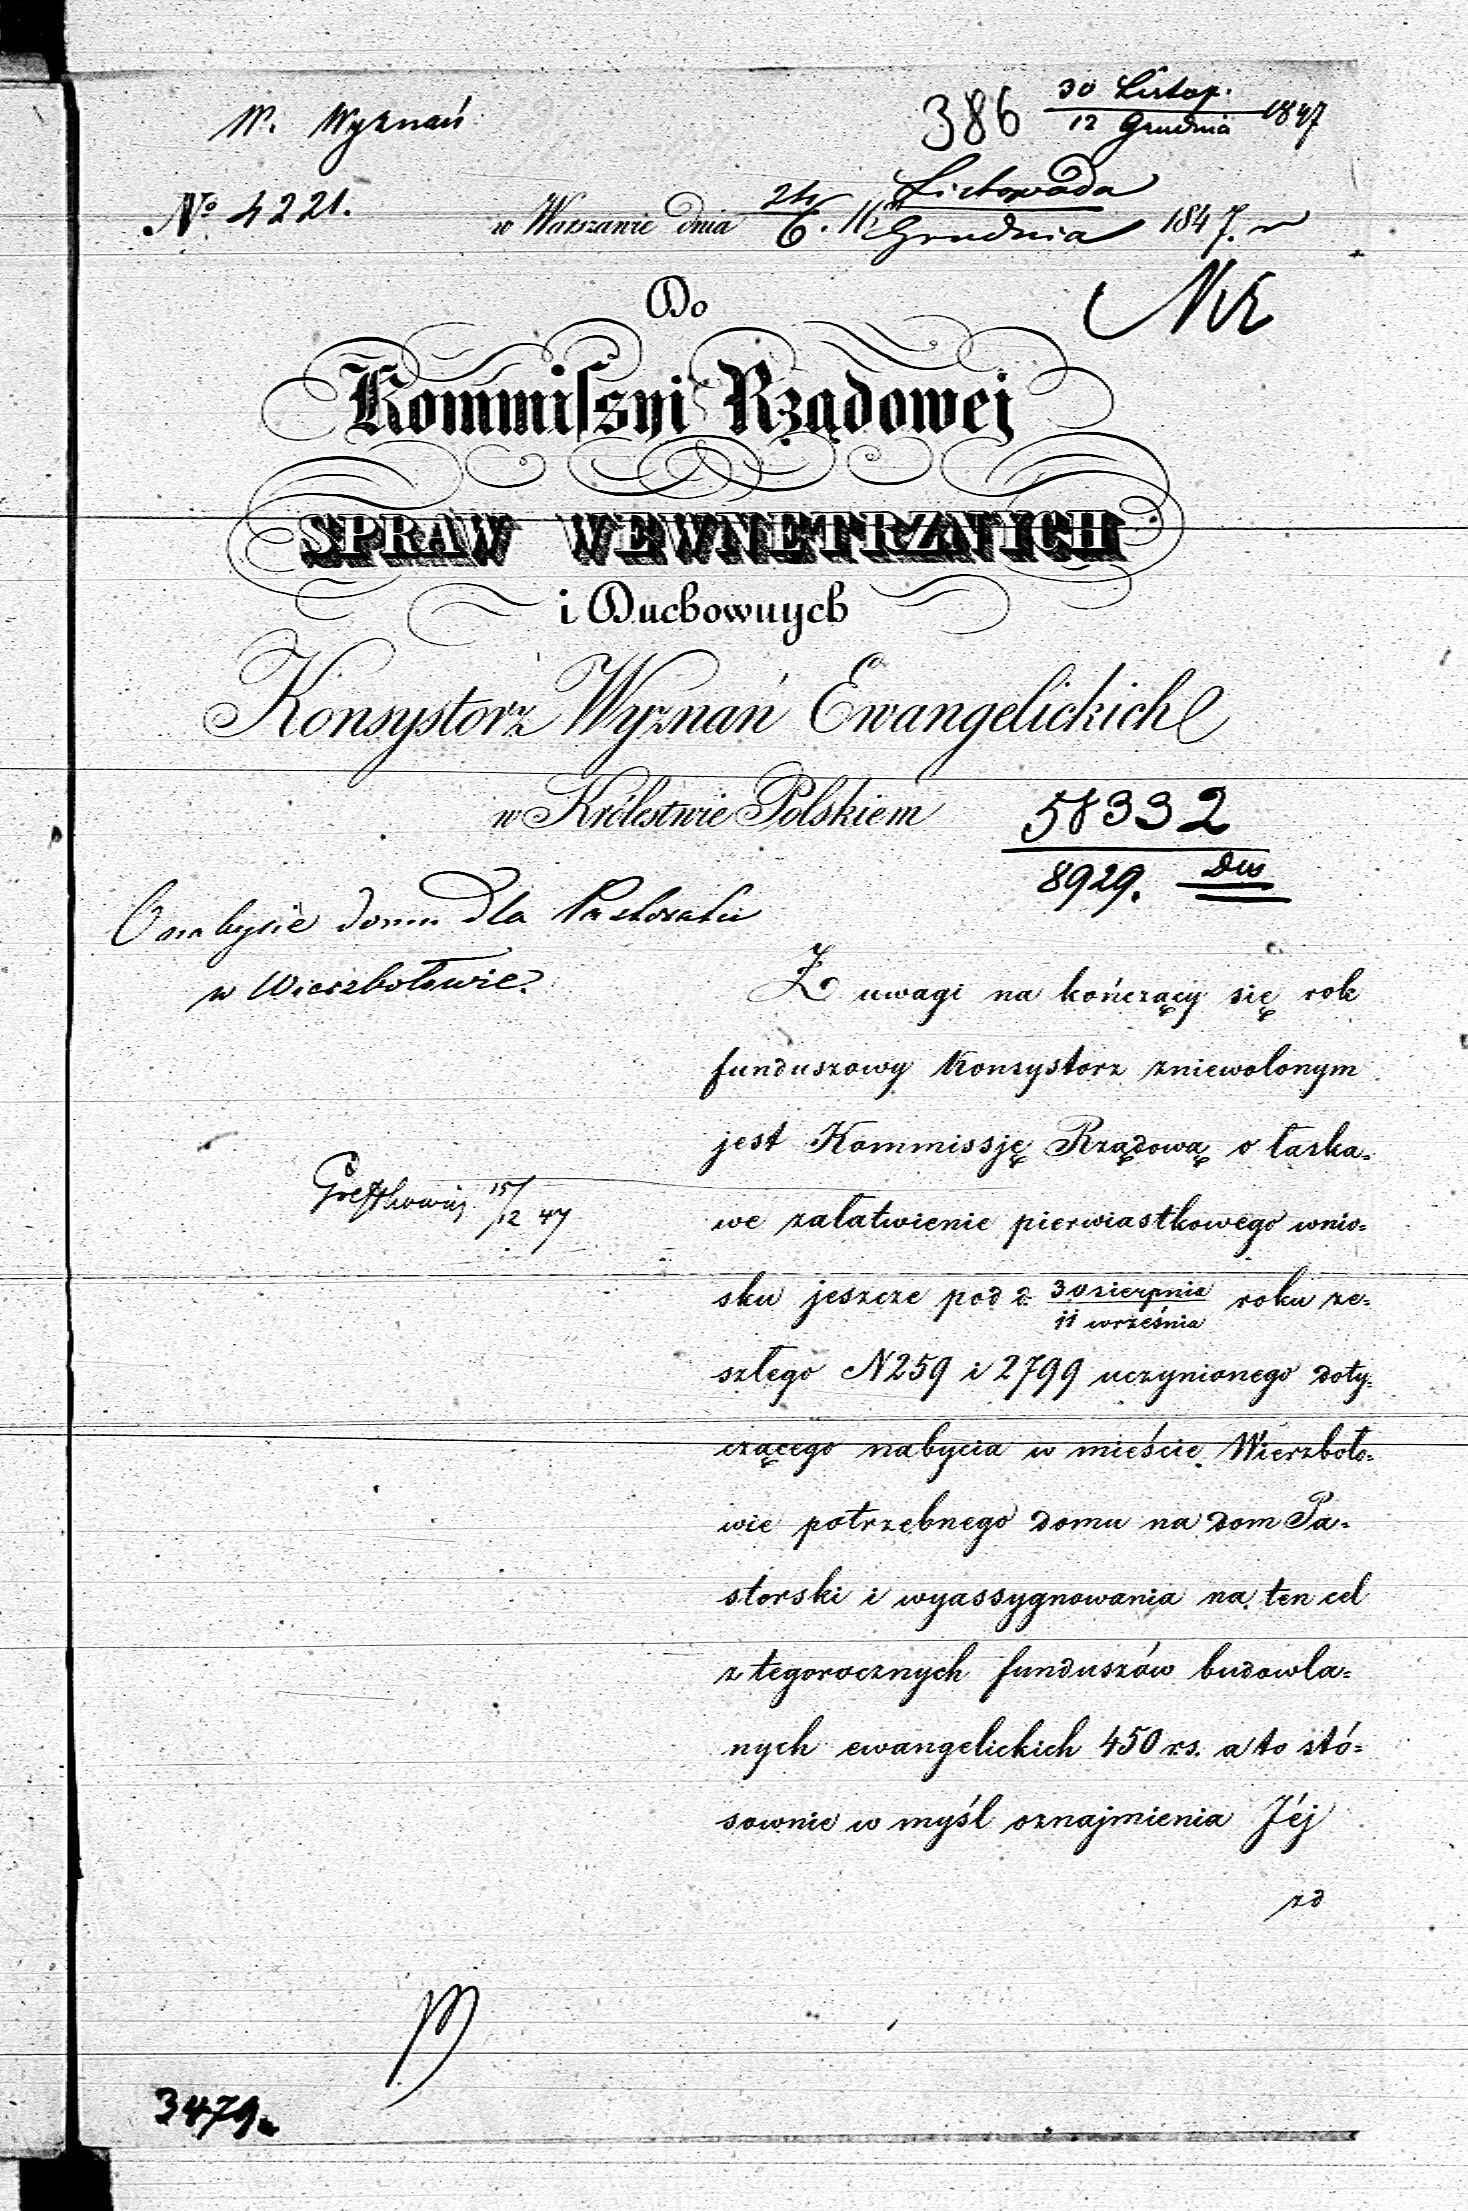 W. Wyznań
386 30 Listop. / 12 Grudnia 1847
No 4221.
w Warszawie dnia 24/6. Listopada / Grudnia 1847. r
Do
Kommissyi Rządowej
SPRAW WEWNĘTRZNYCH
i Duchownych
Konsystorz Wyznań Ewangelickich
w Królestwie Polskiem
58332
8929. Dus
O nabycie domu dla Pastoratu
w Wierzbołowie.
Z uwagi na kończący się rok
funduszowy Konsystorz zniewolonym
jest Kommissję Rządową o łaska=
we załatwienie pierwiastkowego wnio=
sku jeszcze pod d. 30 sierpnia / 11 września roku ze=
szłego N 259 i 2799 uczynionego doty=
czącego nabycia w mieście Wierzboło=
wie potrzebnego domu na dom Pa=
storski i wyassygnowania na ten cel
z tegorocznych funduszów budowla=
nych ewangelickich 450 rs. a to stó=
sownie w myśl oznajmienia Jéj
zd
15/12 47
3479